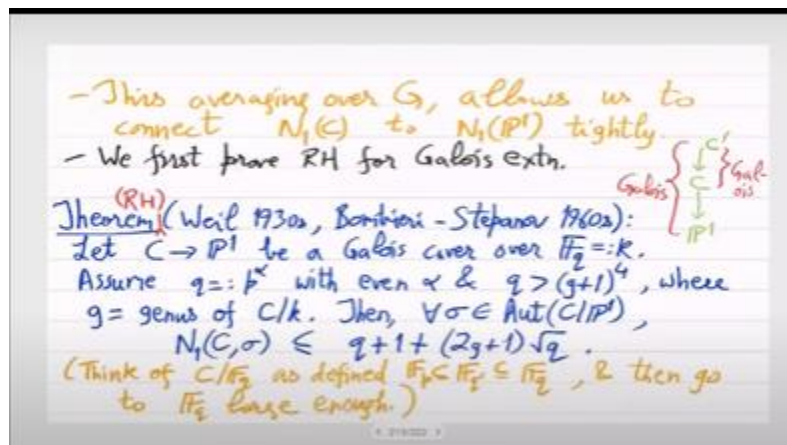 - This averaging over G, allows us to
connect N₁(C) to N₁(ℙ¹) tightly.
- We first prove RH for Galois extn.
Galois { C' ↓ C ↓ ℙ¹ } Gal-ois
(RH)
Theorem (Weil 1930s, Bombieri - Stepanov 1960s):
Let C → ℙ¹ be a Galois cover over 𝔽_q =: k.
Assume q =: p^α with even α & q > (g+1)⁴, where
g = genus of C/k. Then, ∀σ ∈ Aut(C/ℙ¹),
N₁(C,σ) ≤ q+1+(2g+1)√q.
(Think of C/𝔽_q as defined 𝔽_p ⊆ 𝔽_q' ⊆ 𝔽_q, & then go
to 𝔽_q large enough.)